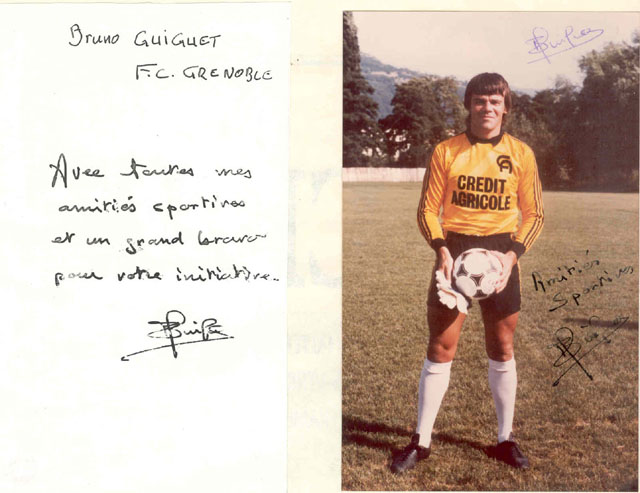 Bruno GUIGUET
F.C. GRENOBLE
Avec toutes mes
amitiés sportives
et un grand bravo
pour votre initiative..
CREDIT
AGRICOLE
Amitiés
Sportives